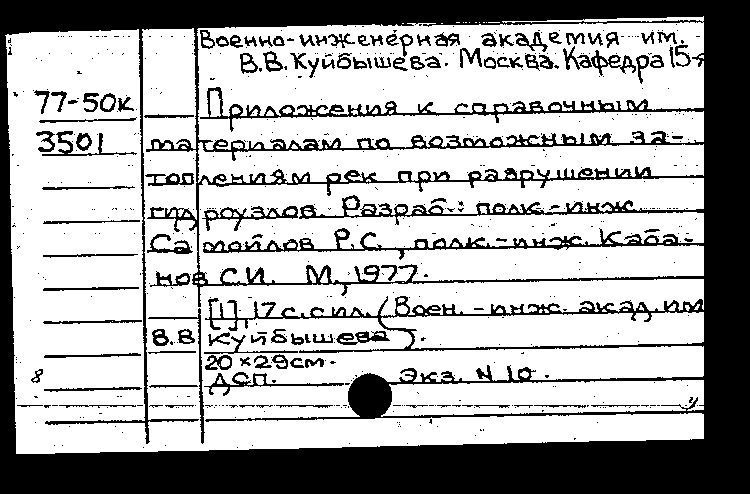 Военно-инженерная академия им.
В.В. Куйбышева. Москва. Кафедра 15-я
77-50к Приложения к справочным
3501 материалам по возможным за-
топлениям рек при разрушении
гидроузлов. Разраб.: полк.-инж
Самойлов Р.С., полк.-инж. Каба-
нов С.И. М., 1977.
[1], 17 с. с ил. (Воен.-инж. акад. им
В.В Куйбышева).
20×29см.
8 ДСП. Экз. N 10.